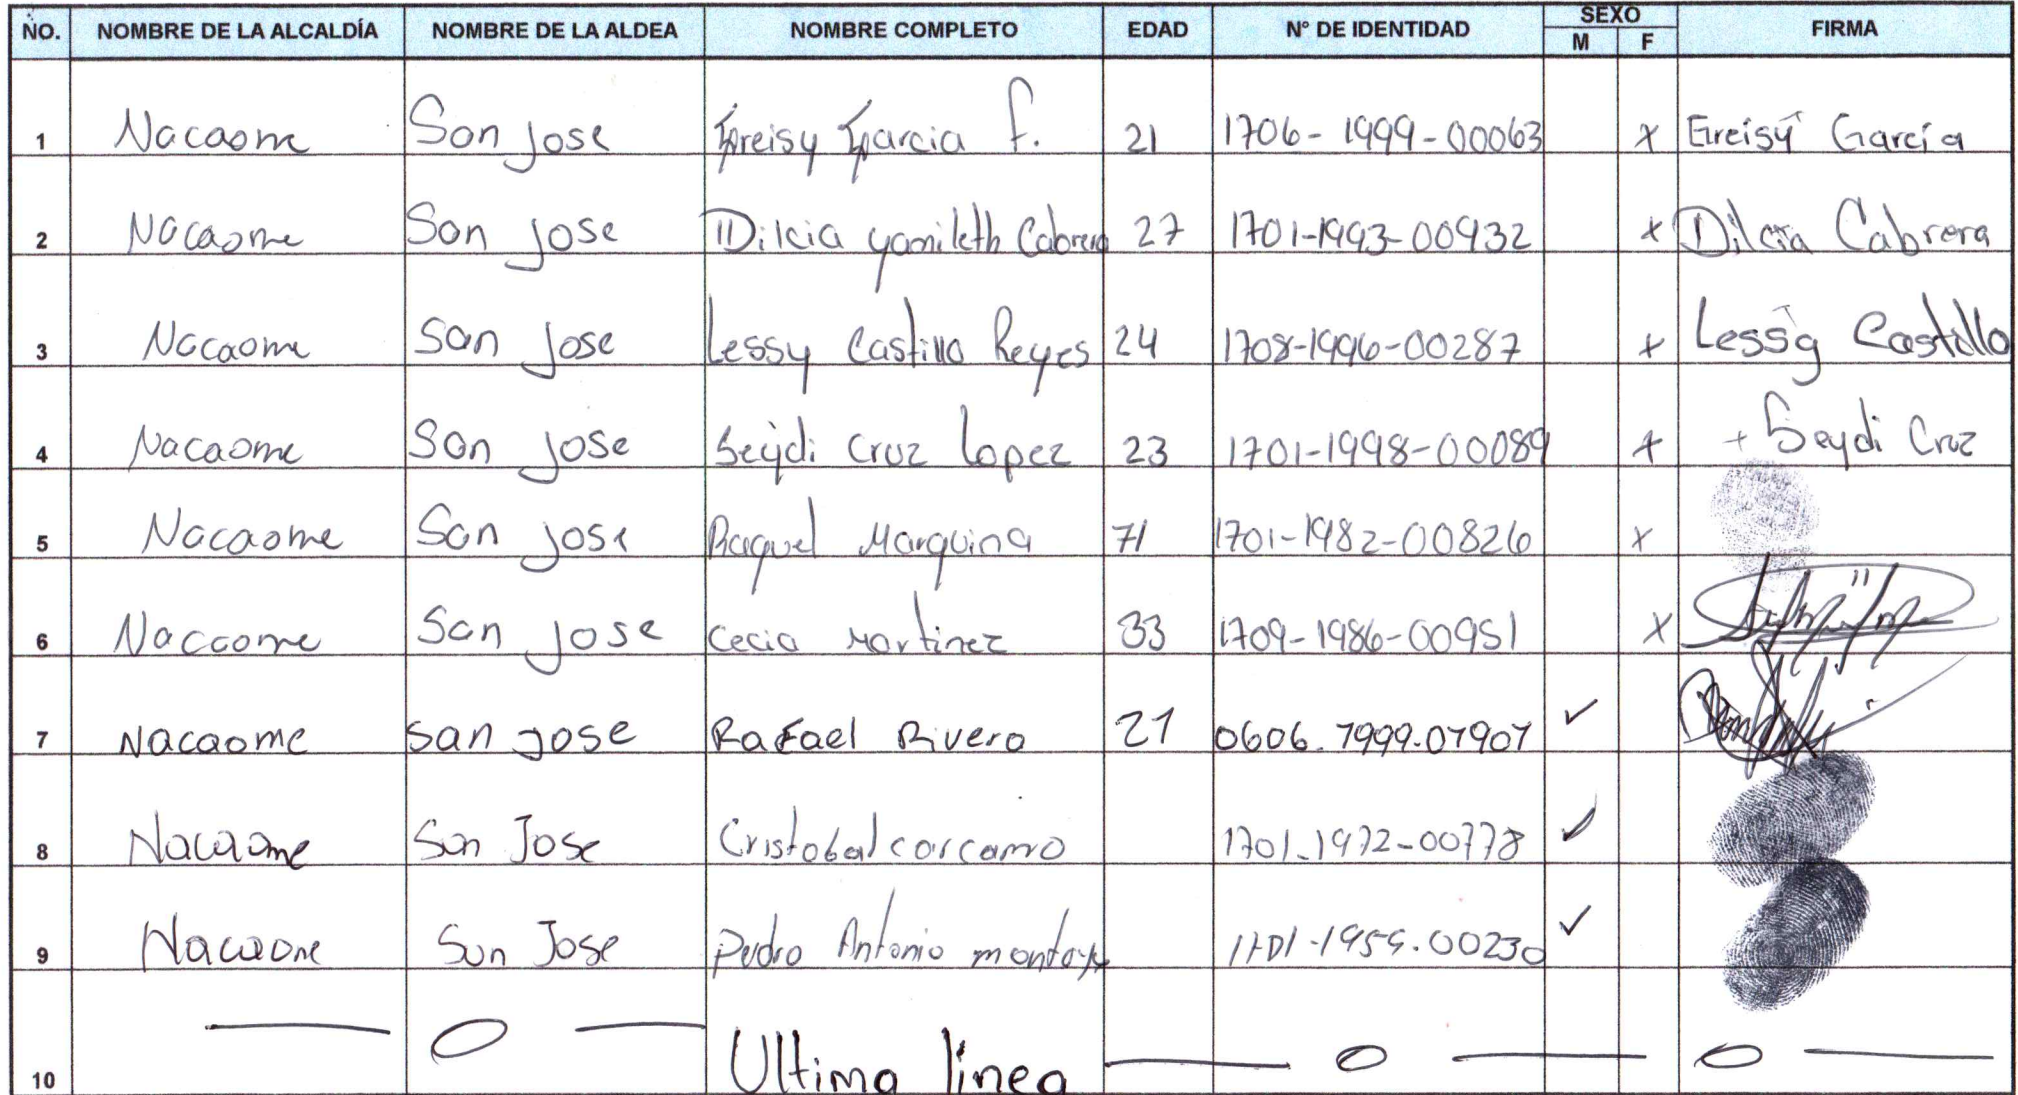 NO. NOMBRE DE LA ALCALDÍA NOMBRE DE LA ALDEA NOMBRE COMPLETO EDAD N° DE IDENTIDAD SEXO M F FIRMA
1 Nacaome San jose Greisy Garcia F. 21 1706-1999-00063 x Greisy García
2 Nacaome San jose Dilcia yamileth Cabrera 27 1701-1993-00932 x Dilcia Cabrera
3 Nacaome San jose Lessy Castillo Reyes 24 1708-1996-00287 x Lessy Castillo
4 Nacaome San jose Seydi Cruz Lopez 23 1701-1998-00089 x Seydi Cruz
5 Nacaome San jose Raquel Marquina 71 1701-1982-00826 x
6 Nacaome San jose Cecia Martinez 33 1709-1986-00951 x
7 Nacaome san jose Rafael Rivera 21 0606.1999.01901 ✓
8 Nacaome San Jose Cristobal carcamo 1701-1972-00778 ✓
9 Nacaome San Jose Pedro Antonio montoya 1701-1959.00230 ✓
10 — 0 — Ultima linea — 0 — 0 —